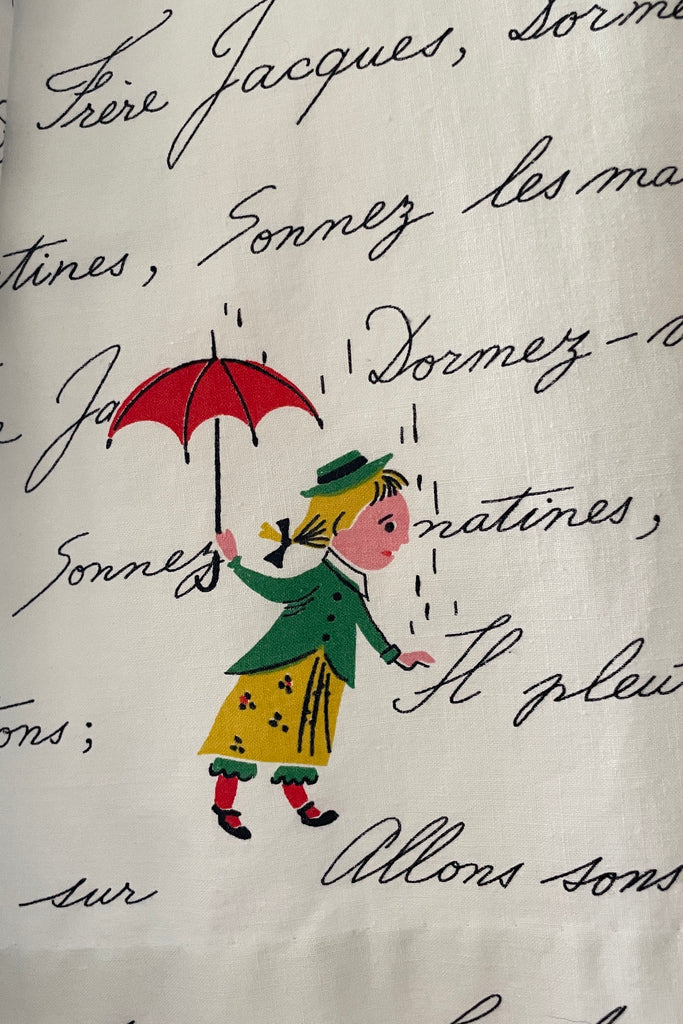 Frère Jacques, Dorme
tines, Sonnez les ma
Ja Dormez-v
Sonnez matines,
Il pleu
ons;
Allons sons
sur